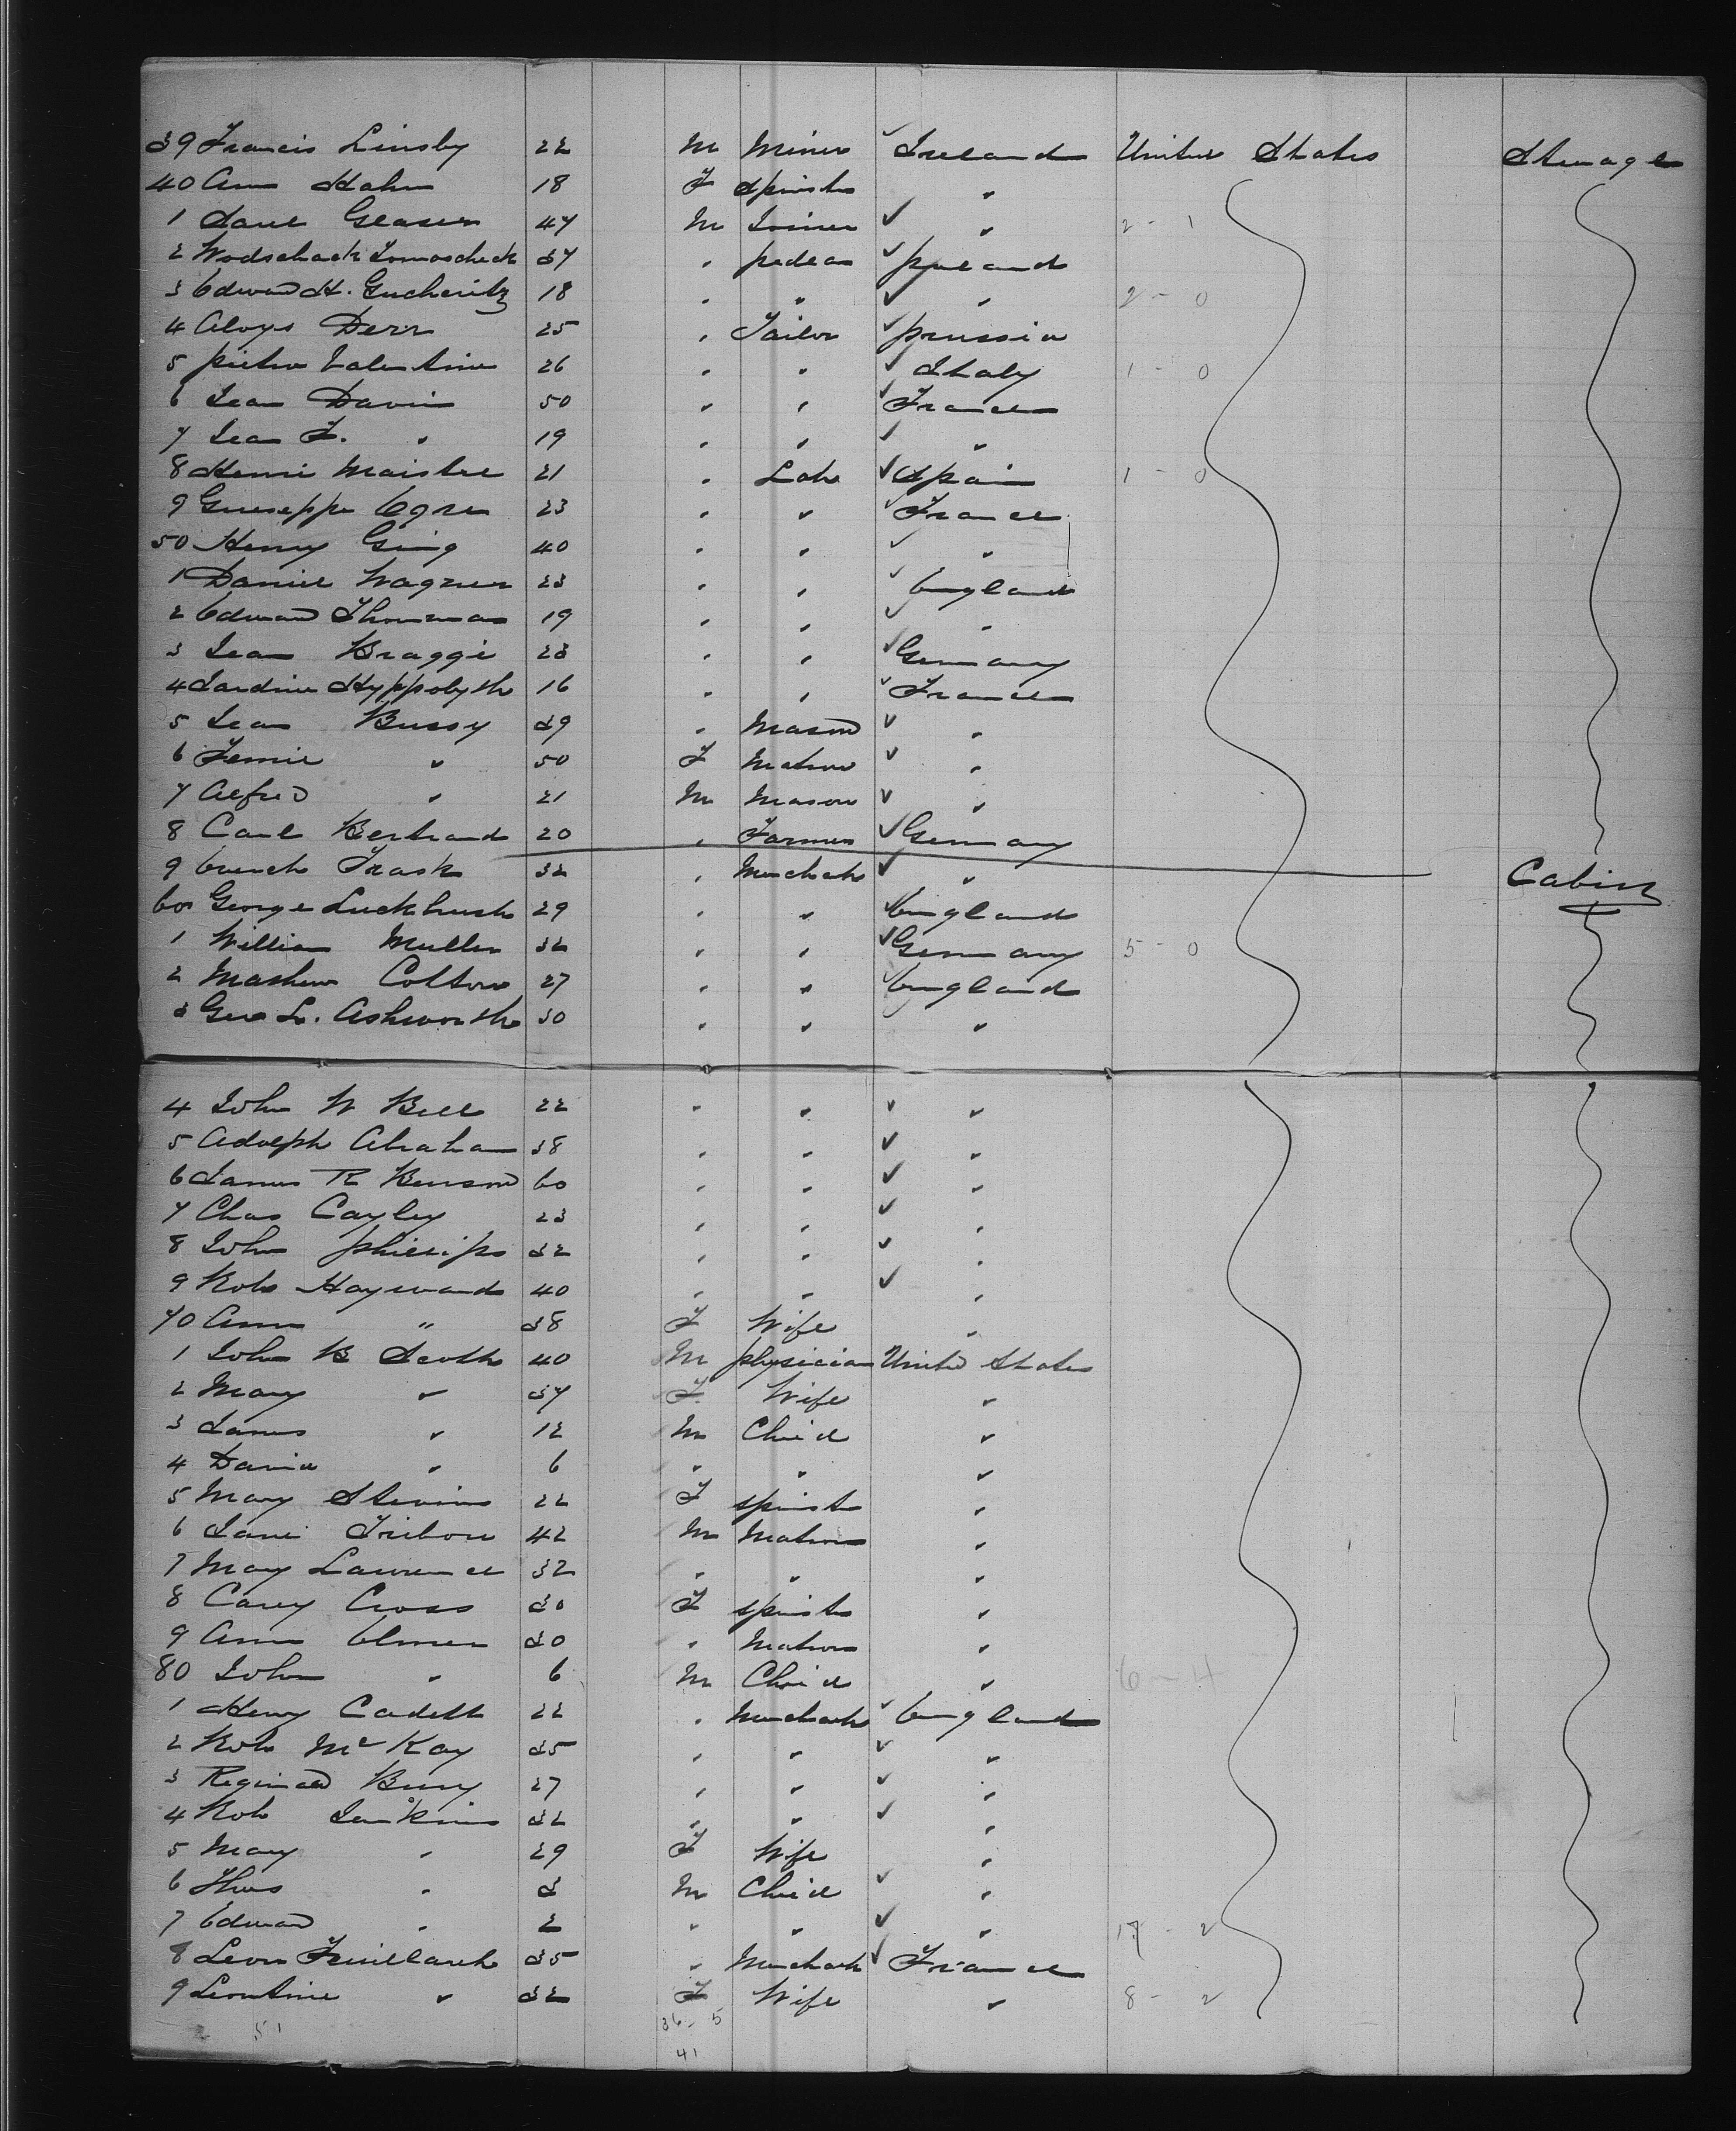 39 Francis Linsby 22 M Miner Ireland United States Steerage
40 Ann Hahn 18 F Spinster "
1 47 M Joiner ✓ " 2 - 1
2 Wodschack Tomoscheck 37 " pedlar ✓ poland
3 Edward H. Gucheritz 18 " " ✓ " 2 - 0
4 Aloys Derr 25 " Tailor ✓ prussia
5 pietro Valentine 26 " " ✓ Italy 1 - 0
6 Jean Davin 50 " " ✓ France
7 Jean F. " 19 " " ✓ "
8 Henri Maistre 21 " Labr ✓ Spain 1 - 0
9 Guiseppe 23 " " ✓ France
50 Henry 40 " " ✓ "
1 Daniel Wagner 23 " " ✓ England
2 Edward Thommas 19 " " ✓ "
3 Jean Braggi 23 " " ✓ Germany
4 Hyppolyth 16 " " ✓ France
5 Jean Bussy 39 " Mason ✓ "
6 " 50 F Matron ✓ "
7 Alfred " 21 M Mason ✓ "
8 Carl Bertrand 20 " Farmer ✓ Germany
9 Trask 32 " Merchant ✓ " Cabin
60 George Luckhurst 29 " " ✓ England
1 William Muller 32 " " ✓ Germany 5 - 0
2 Mathew Colton 27 " " ✓ England
3 Geo L. Ashworth 30 " " "
4 John W Bell 22 " " ✓ "
5 Adolph Abraham 38 " " ✓ "
6 James R Benson 60 " " ✓ "
7 Chas Cayley 23 " " ✓ "
8 John phillips 32 " " ✓ "
9 Robt Hayward 40 " " ✓ "
70 Ann " 38 F Wife "
1 John B Scott 40 M physician United States
2 Mary " 37 F Wife "
3 James " 12 M Child "
4 David " 6 " " "
5 Mary Stevins 22 F spinster "
6 Jane Tribou 42 M Matron "
7 Mary Lawrence 32 " " "
8 Carry Cross 30 F spinster "
9 Ann Elmer 30 " Matron "
80 John " 6 M Child " 6 - 4
1 Henry Cadell 22 " Merchant ✓ England
2 Robt McKay 35 " " ✓ "
3 Reginald Bury 27 " " ✓ "
4 Robt Jenkins 32 " " ✓ "
5 Mary " 29 F Wife "
6 Thos " 3 M Child ✓ "
7 Edward " 2 " " ✓ " 17 - 2
8 Leon Feuillant 35 " Merchant ✓ France
9 Leontine " 32 F Wife " 8 - 2
51 36 - 5
41